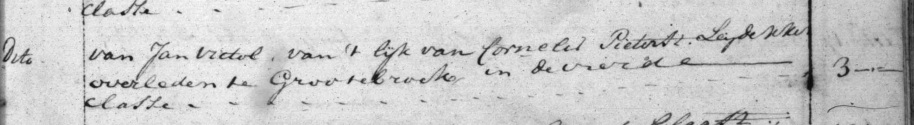 classe - - - -
Dito van Jan Victol. van't lijk van Cornelis Pieters. Leydekker
overleden te Grootebroek in de vierde 3-.-
classe - - - -